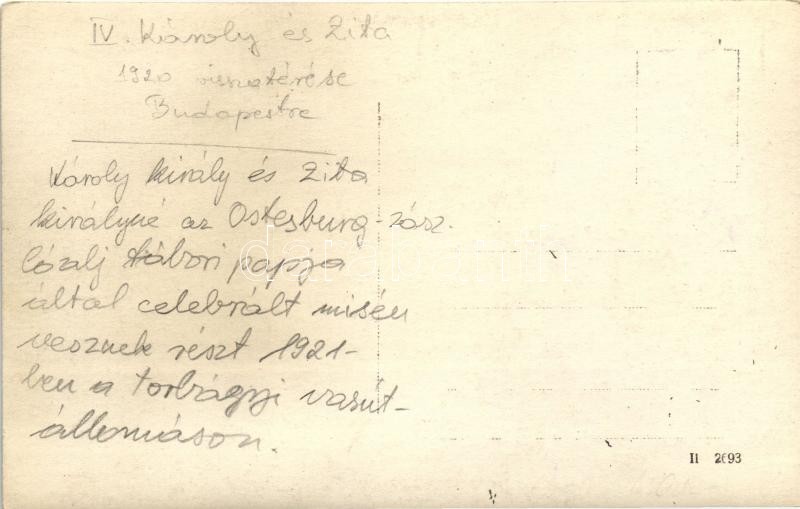 IV. Károly és Zita
1920 visszatérése
Budapestre
Károly király és Zita
királyné az Ostenburg-zász.
lóalj tábori papja
által celebrált misén
vesznek részt 1921-
ben a torbágyi vasút-
állomáson.
II 2693